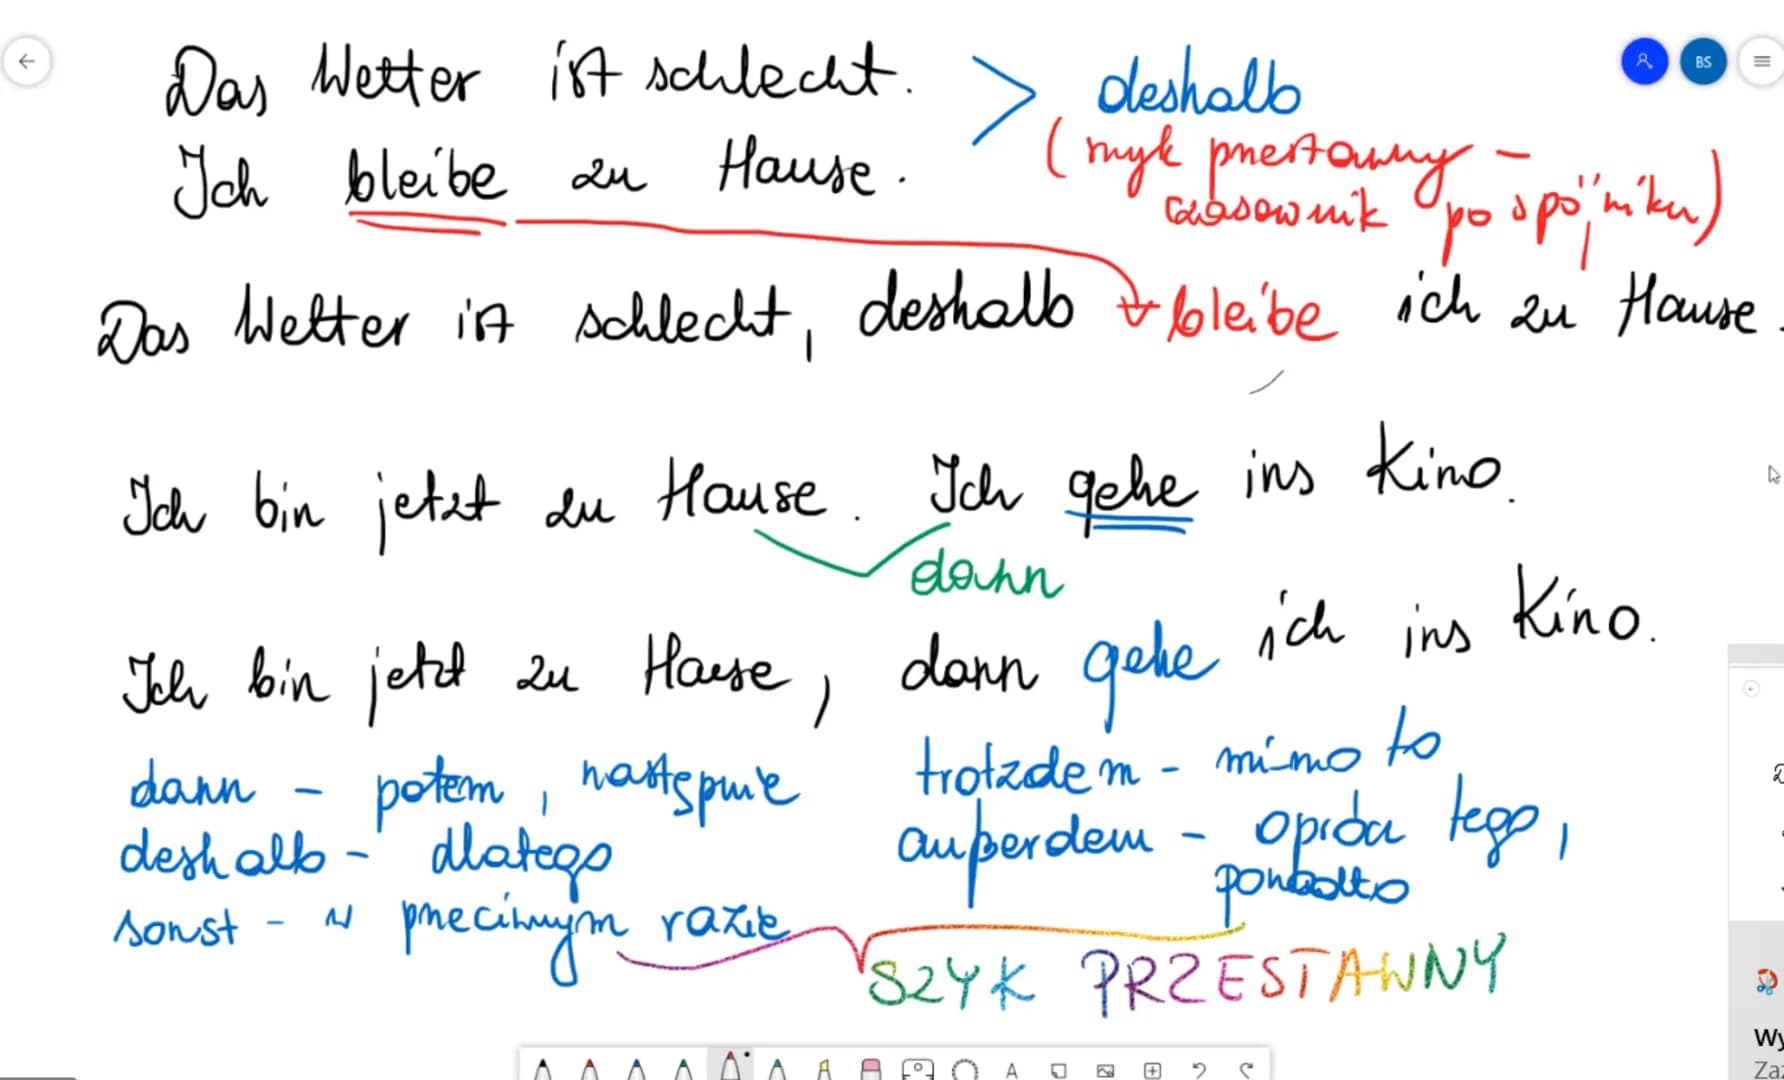 Das Wetter ist schlecht. > deshalb
BS
Ich bleibe zu Hause. (szyk przestawny -
czasownik po spójniku)
Das Wetter ist schlecht, deshalb bleibe ich zu Hause.
Ich bin jetzt zu Hause. Ich gehe ins Kino.
dann
Ich bin jetzt zu Hause, dann gehe ich ins Kino.
dann - potem, następnie
trotzdem - mimo to
deshalb - dlatego
außerdem - oprócz tego,
ponadto
sonst - w przeciwnym razie
SZYK PRZESTAWNY
Wy
Zaz